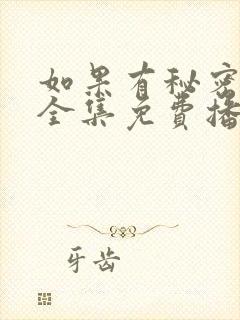 如果有秘密
全集免费播
牙齿